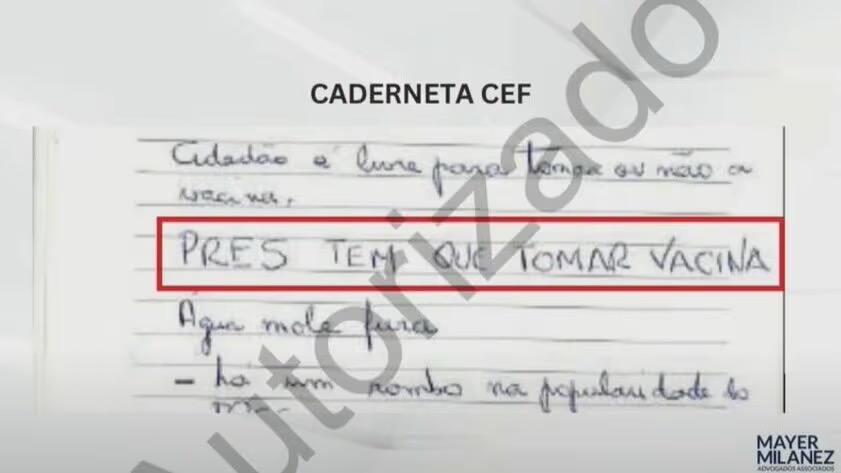 CADERNETA CEF
Cidadão é livre para tomar ou não a
vacina.
PRES TEM QUE TOMAR VACINA
Água mole fura
- há um rombo na popularidade do
Autorizado
MAYER
MILANEZ
ADVOGADOS ASSOCIADOS